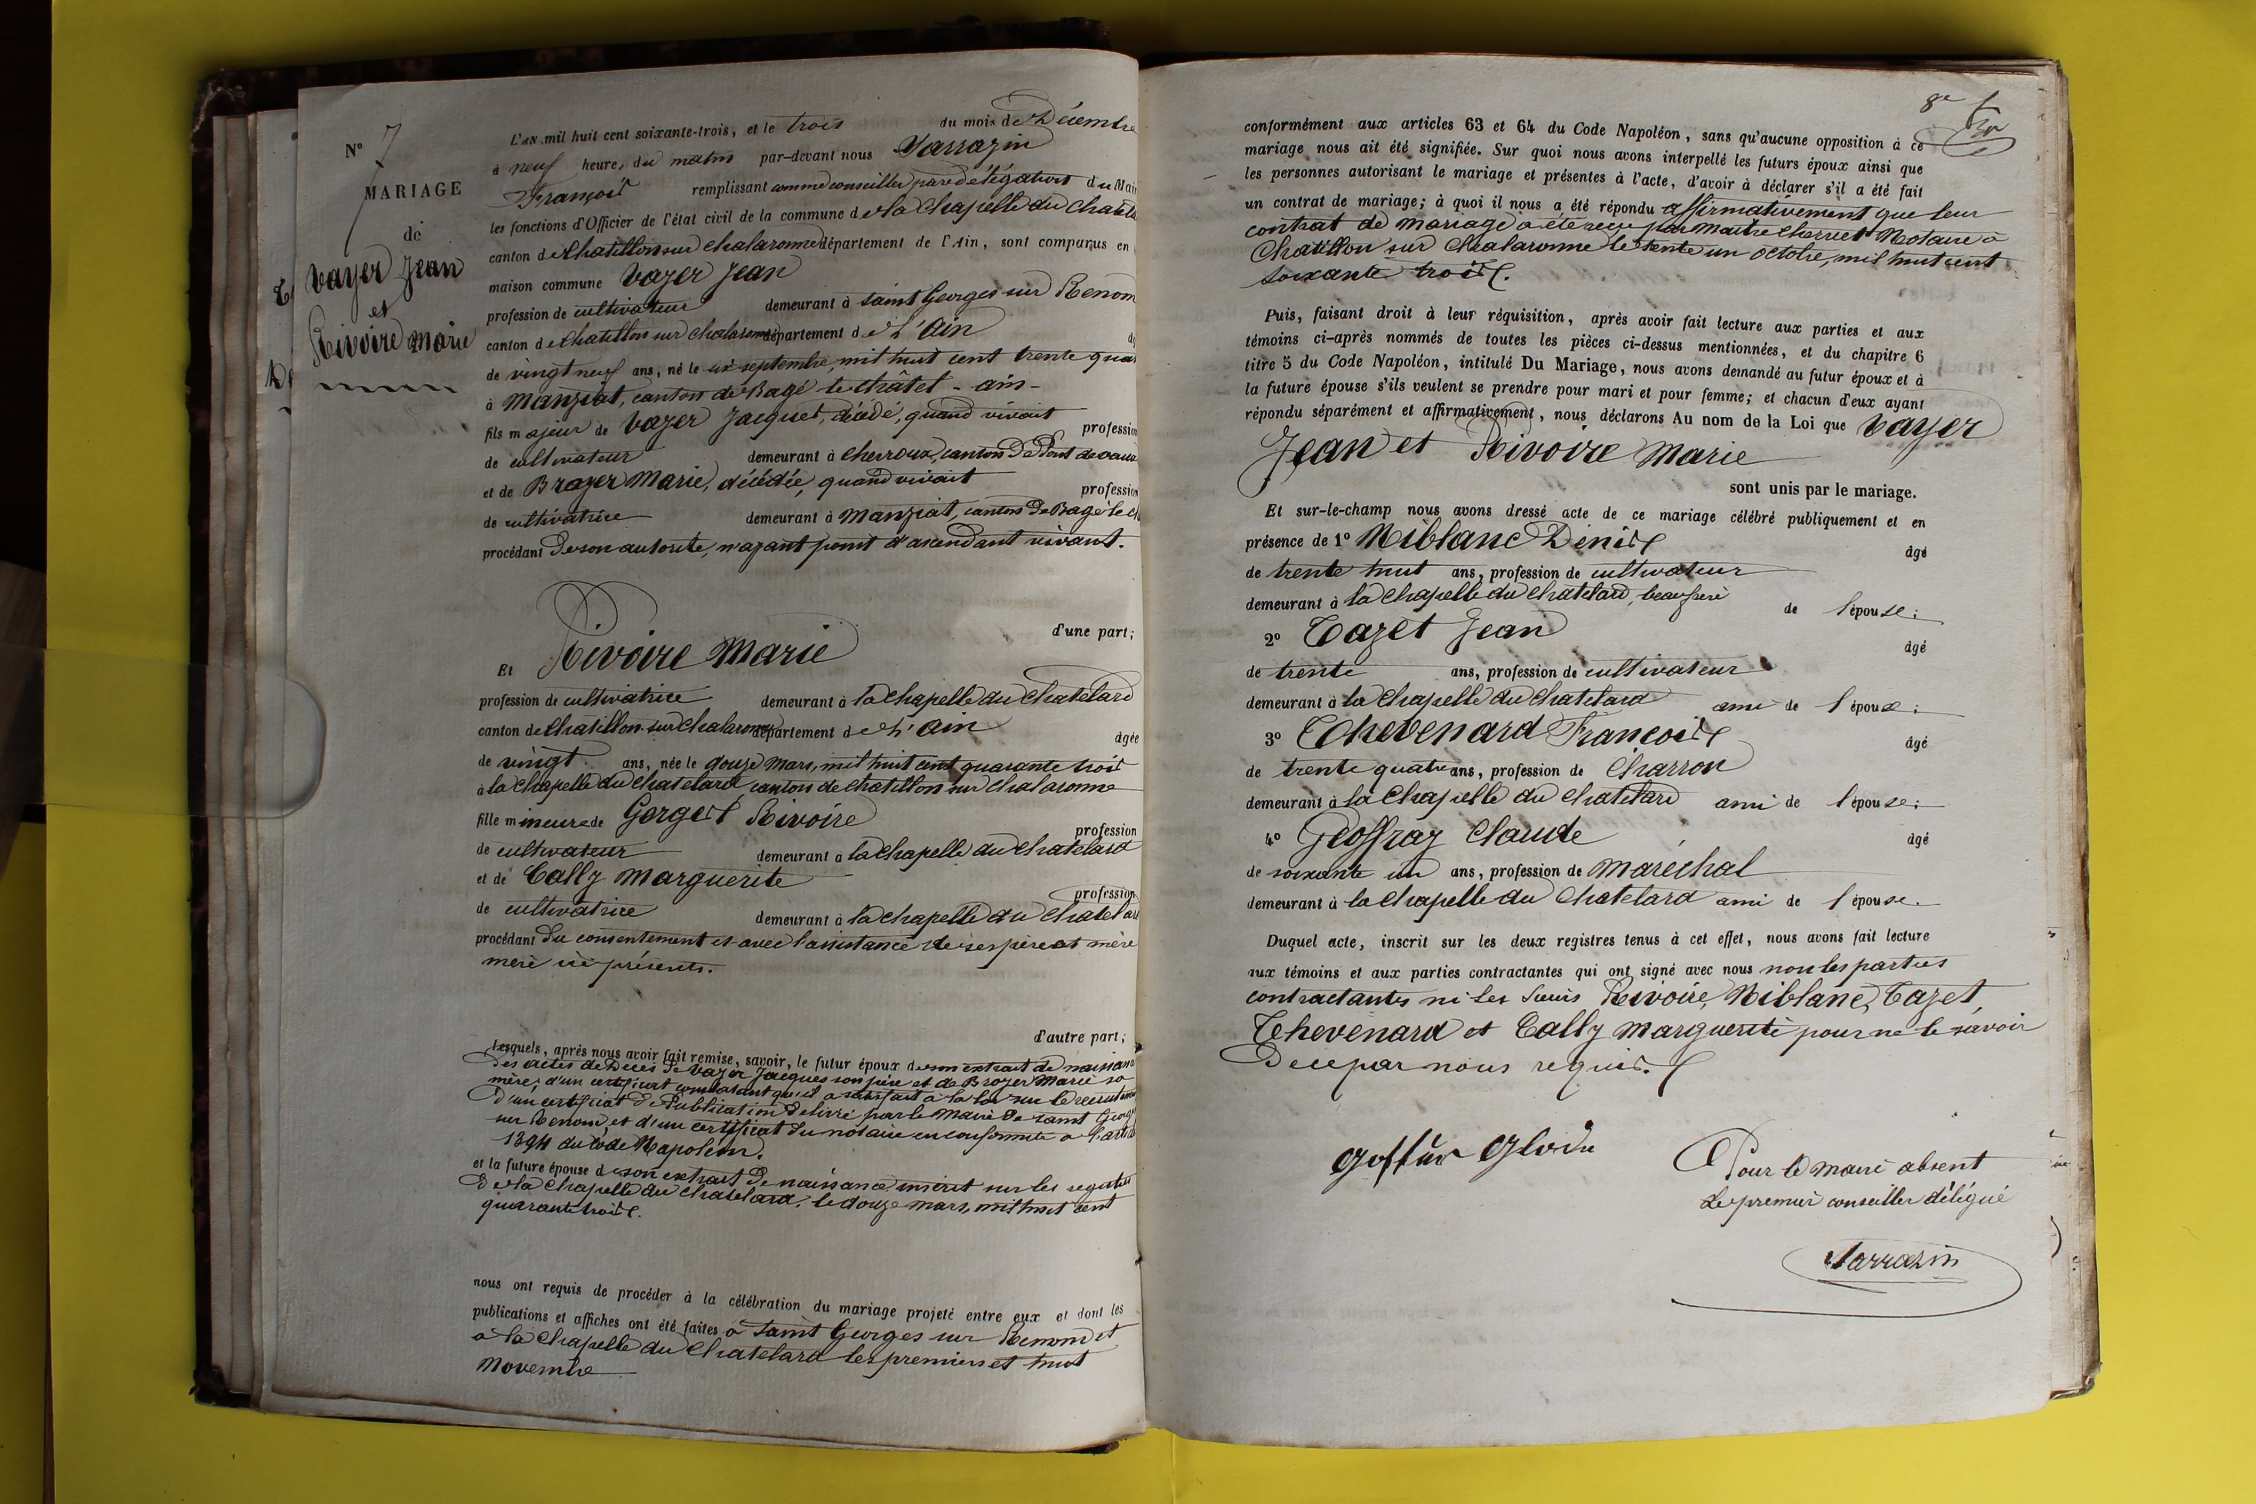 N° 7
MARIAGE
de
Vayer Jean
et
Rivoire Marie
L'AN mil huit cent soixante-trois, et le trois du mois de Décembre
à neuf heure, du matin par-devant nous Sarrazin
François remplissant comme conseiller par délégation du Mai
les fonctions d'Officier de l'état civil de la commune de la Chapelle du Chatel
canton de Chatillon sur Chalaronne département de l'Ain, sont comparus en
maison commune Vayer Jean
profession de cultivateur demeurant à Saint Georges sur Renom
canton de Chatillon sur Chalaronne département de L'Ain
de vingt neuf ans, né le six septembre, mil huit cent trente qua
à Manziat, canton de Bagé le châtel - ain -
fils majeur de Vayer Jacques, décédé, quand vivait
profession
de cultivateur demeurant à Chevroux, canton de Pont de vaux
et de Brayer Marie, décédée, quand vivait
profession
de cultivatrice demeurant à Manziat, canton de Bagé le ch
procédant de son autorité, n'ayant point d'ascendant vivant.
d'une part;
Et Rivoire Marie
profession de cultivatrice demeurant à la Chapelle du Chatelard
canton de Chatillon sur Chalaronne département de L'Ain
âgée
de vingt ans, née le douze mars, mil huit cent quarante trois
à la Chapelle du Chatelard canton de Chatillon sur Chalaronne
fille mineure de Gorges Rivoire
profession
de cultivateur demeurant à la Chapelle du Chatelard
et de Cally Marguerite
profession
de cultivatrice demeurant à la Chapelle du Chatelard
procédant du consentement et avec l'assistance de ses père et mère
mère ici présents.
d'autre part;
Lesquels, après nous avoir fait remise, savoir, le futur époux de son extrait de naissance
des actes de Décès de Vayer Jacques son père et de Brayer Marie sa
mère, d'un certificat constatant qu'il a satisfait à la loi sur le recrutement
d'un certificat de Publication délivré par le maire de Saint Georges
sur Renom, et d'un certificat du notaire en conformité à l'article
1394 du Code Napoléon.
et la future épouse de son extrait de naissance inscrit sur les registres
de la Chapelle du Chatelard, le douze mars, mil huit cent
quarante trois.
nous ont requis de procéder à la célébration du mariage projeté entre eux et dont les
publications et affiches ont été faites à Saint Georges sur Renom et
à la Chapelle du Chatelard les premier et huit
Novembre
8e
conformément aux articles 63 et 64 du Code Napoléon, sans qu'aucune opposition à ce
mariage nous ait été signifiée. Sur quoi nous avons interpellé les futurs époux ainsi que
les personnes autorisant le mariage et présentes à l'acte, d'avoir à déclarer s'il a été fait
un contrat de mariage; à quoi il nous a été répondu affirmativement que leur
contrat de mariage a été reçu par Maître Notaire à
Chatillon sur Chalaronne le trente un octobre, mil huit cent
soixante trois.
Puis, faisant droit à leur réquisition, après avoir fait lecture aux parties et aux
témoins ci-après nommés de toutes les pièces ci-dessus mentionnées, et du chapitre 6
titre 5 du Code Napoléon, intitulé Du Mariage, nous avons demandé au futur époux et à
la future épouse s'ils veulent se prendre pour mari et pour femme; et chacun d'eux ayant
répondu séparément et affirmativement, nous déclarons Au nom de la Loi que Vayer
Jean et Rivoire Marie
sont unis par le mariage.
Et sur-le-champ nous avons dressé acte de ce mariage célébré publiquement et en
présence de 1° Niblanc Denis âgé
de trente huit ans, profession de cultivateur
demeurant à la Chapelle du Chatelard, beaufrère de l'épouse;
2° Cazet Jean âgé
de trente ans, profession de cultivateur
demeurant à la Chapelle du Chatelard ami de l'époux;
3° Thevenard François âgé
de trente quatre ans, profession de Charron
demeurant à la Chapelle du Chatelard ami de l'épouse;
4° Geoffray Claude âgé
de soixante un ans, profession de Maréchal
demeurant à la Chapelle du Chatelard ami de l'épouse.
Duquel acte, inscrit sur les deux registres tenus à cet effet, nous avons fait lecture
aux témoins et aux parties contractantes qui ont signé avec nous non les parties
contractantes ni les Rivoire, Niblanc, Cazet,
Thevenard et Cally Marguerite pour ne le savoir
de ce par nous requis.
Pour le maire absent
Le premier conseiller délégué
Sarrazin